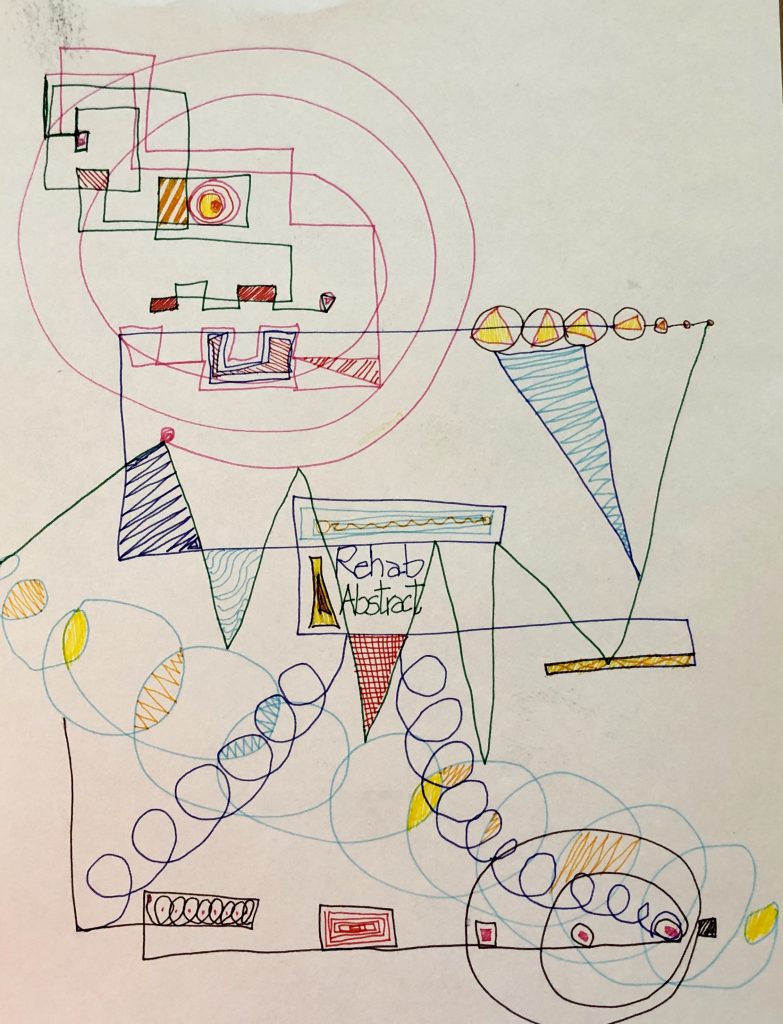 Rehab
Abstract